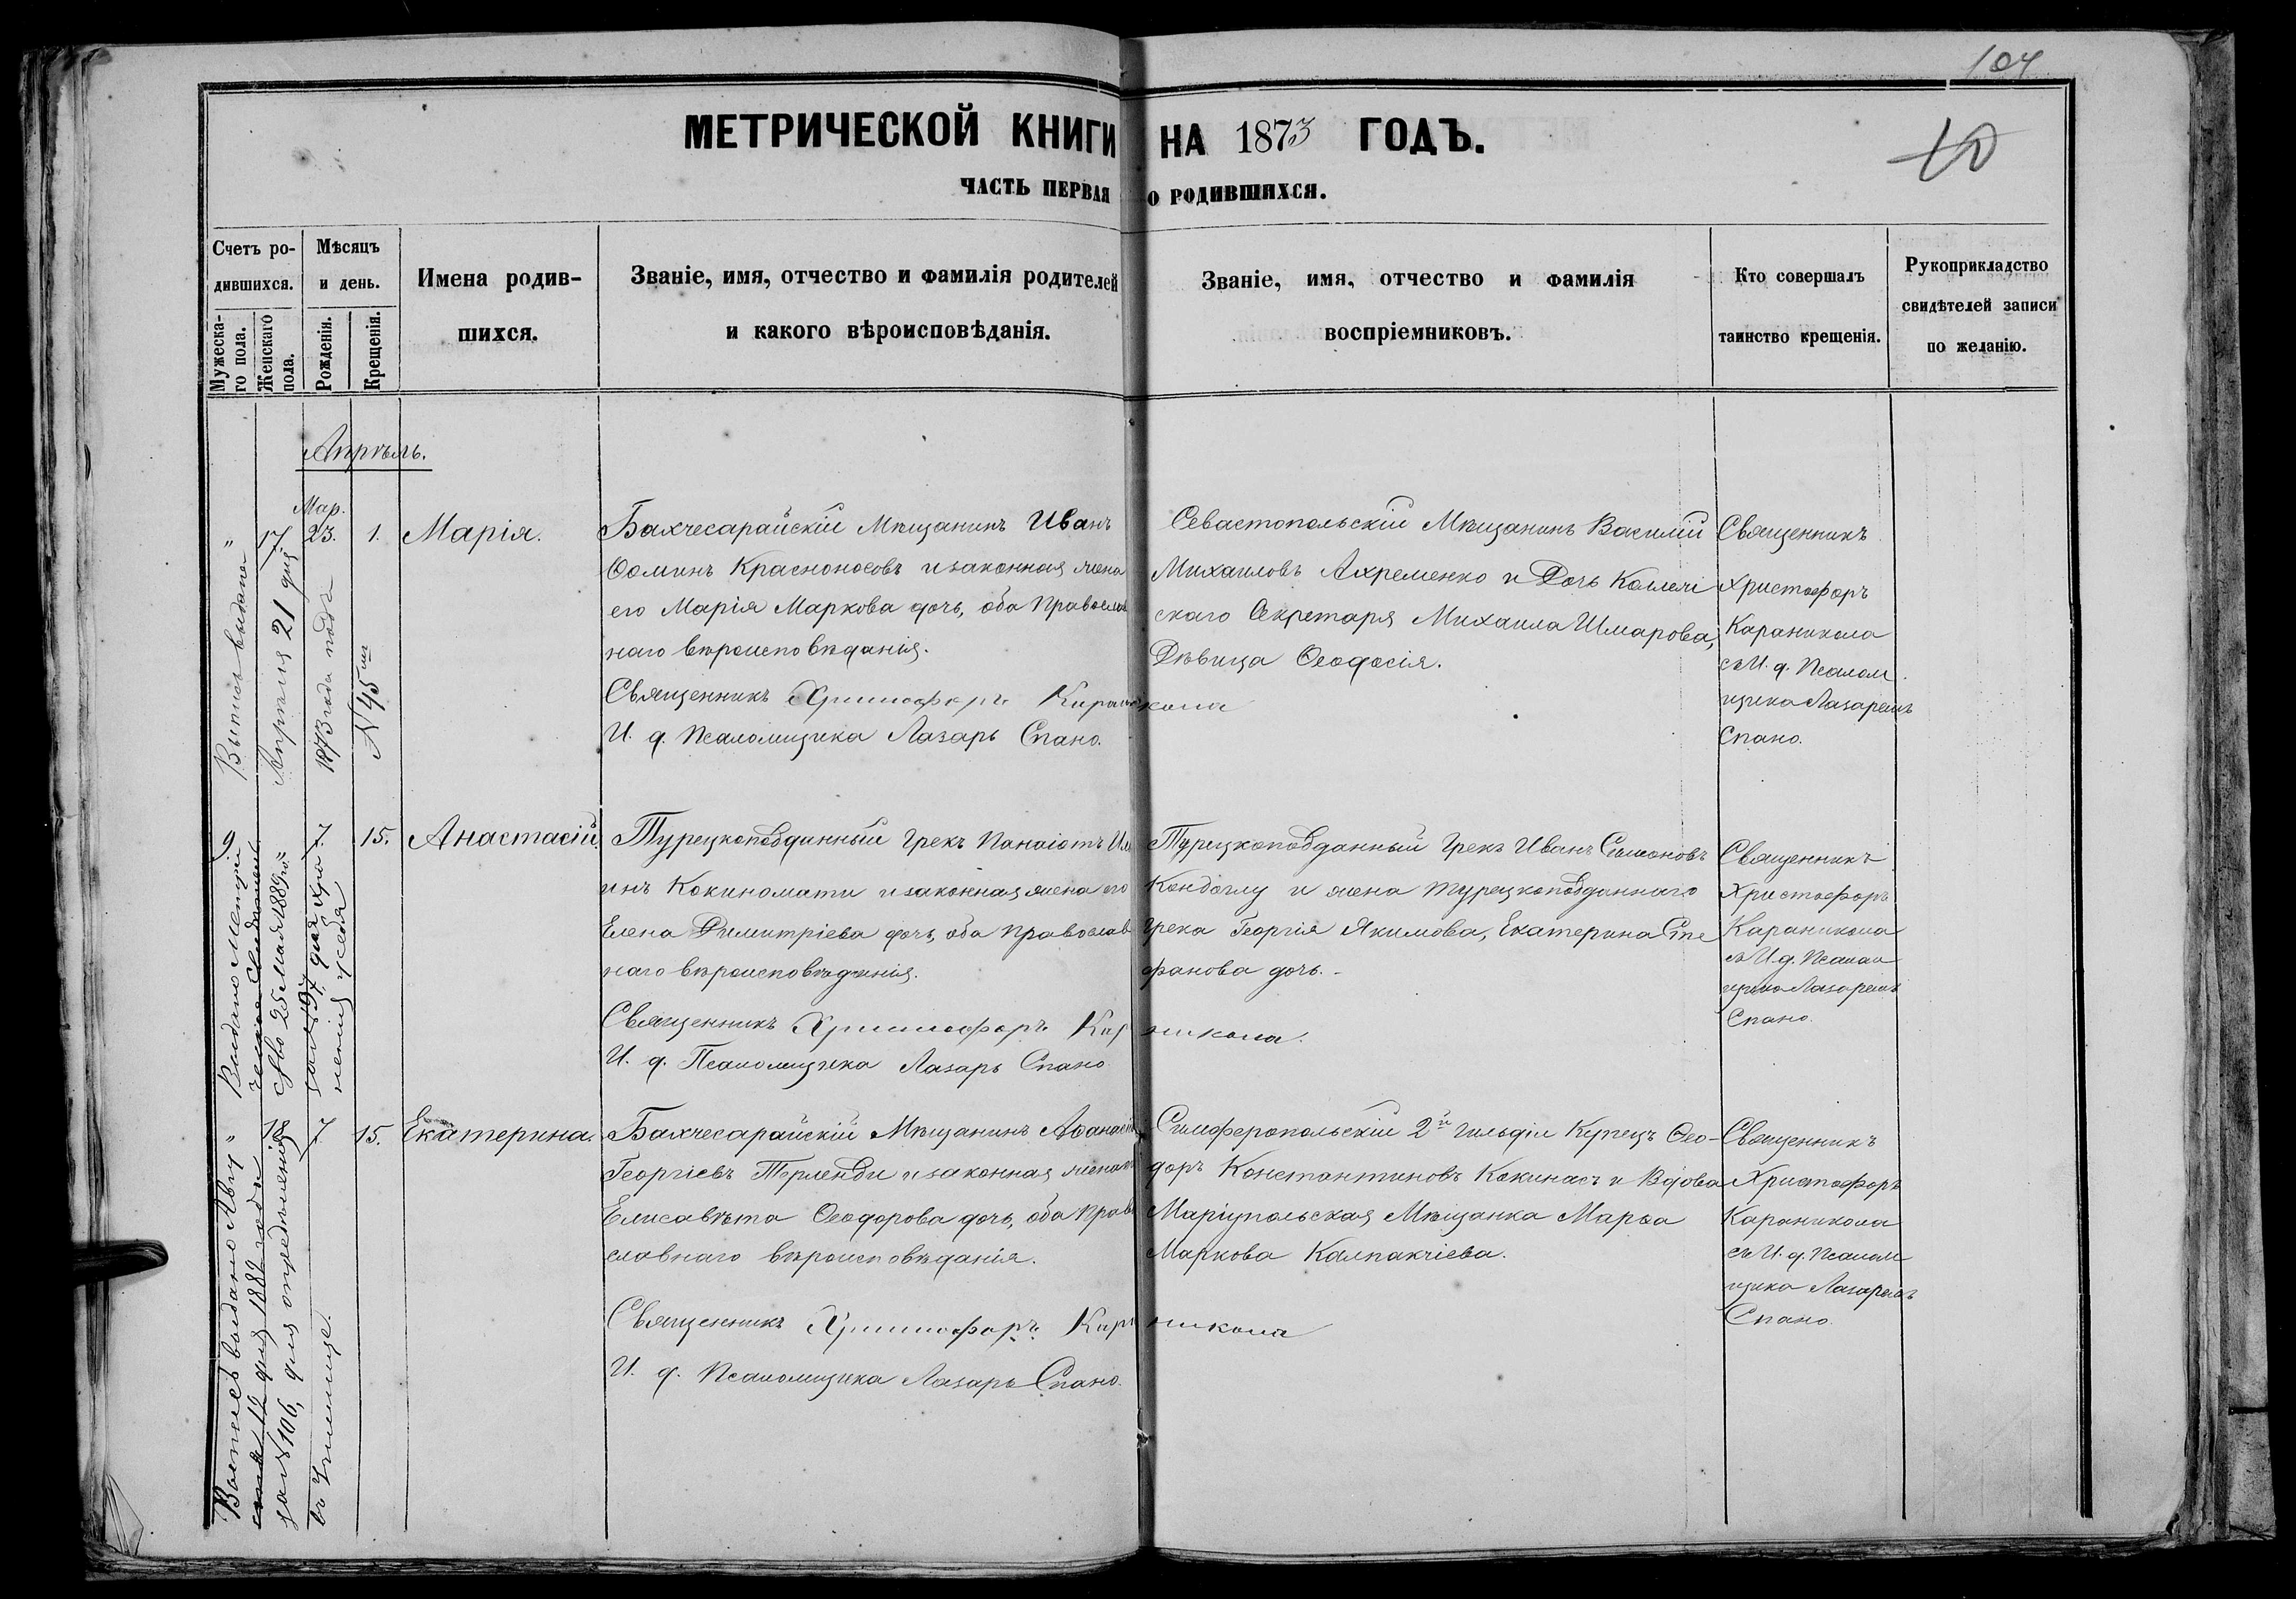 104
10
МЕТРИЧЕСКОЙ КНИГИ НА 1873 ГОДЪ.
ЧАСТЬ ПЕРВАЯ О РОДИВШИХСЯ.
Счетъ ро-
дившихся.
Мужеска-
го пола.
Женскаго
пола.
Мѣсяцъ
и день.
Рожденія.
Крещенія.
Имена родив-
шихся.
Званіе, имя, отчество и фамилія родителей
и какого вѣроисповѣданія.
Званіе, имя, отчество и фамилія
воспріемниковъ.
Кто совершалъ
таинство крещенія.
Рукоприкладство
свидѣтелей записи
по желанію.
Апрѣль.
Мар.
" 17 23. 1. Марія.
Бахчесарайскій Мѣщанинъ Иванъ
Ѳоминъ Красноносовъ и законная жена
его Марія Маркова дочь, оба Православ
наго вѣроисповѣданія.
Священникъ Христофоръ Караникола
И. д. Псаломщика Лазарь Спано.
Севастопольскій Мѣщанинъ Василій
Михаиловъ Ахременко и Дочь Коллежі
скаго Секретаря Михаила Шмарова,
Дѣвица Ѳеодосія.
Священникъ
Христофоръ
Караникола
съ И. д. Псалом
щика Лазаремъ
Спано.
Выпись выдана
Апрѣля 21 дня
1873 года подъ
№ 45
9 7 15. Анастасій
Турецкоподданный Грекъ Панаіотъ Ил
инъ Кокиномати и законная жена его
Елена Димитріева дочь, оба Православ
наго вѣроисповѣданія.
Священникъ Христофоръ Караникола.
И. д. Псаломщика Лазарь Спано
Турецкоподданный Грекъ Иванъ Симоновъ
Кондоглу и жена турецкоподданнаго
Грека Георгія Якимова, Екатерина Сте
фанова дочь.-
Священникъ
Христофоръ
Караникола
съ И. д. Псалом
щика Лазаремъ
Спано.
Выдано Метри
ческое Свидетель
ство 25 Мая 1889 го
за № 97 для
" 18 7 15. Екатерина.
Бахчесарайскій Мѣщанинъ Аѳанасій
Георгіевъ Терленди и законная жена его
Елисавѣта Ѳеодорова дочь, оба Право
славнаго вѣроисповѣданія.
Священникъ Христофоръ Караникола
И. д. Псаломщика Лазарь Спано.
Симферопольскій 2й гильдіи Купецъ Ѳео-
доръ Константиновъ Кокинасъ и Вдова
Маріупольская Мѣщанка Марѳа
Маркова Калпакчіева.
Священникъ
Христофоръ
Караникола
съ И. д. Псалом
щика Лазаремъ
Спано.
Выпись выдано Авгу
ста 12 дня 1882 года
за № 106, для опредѣленія
въ Училище.